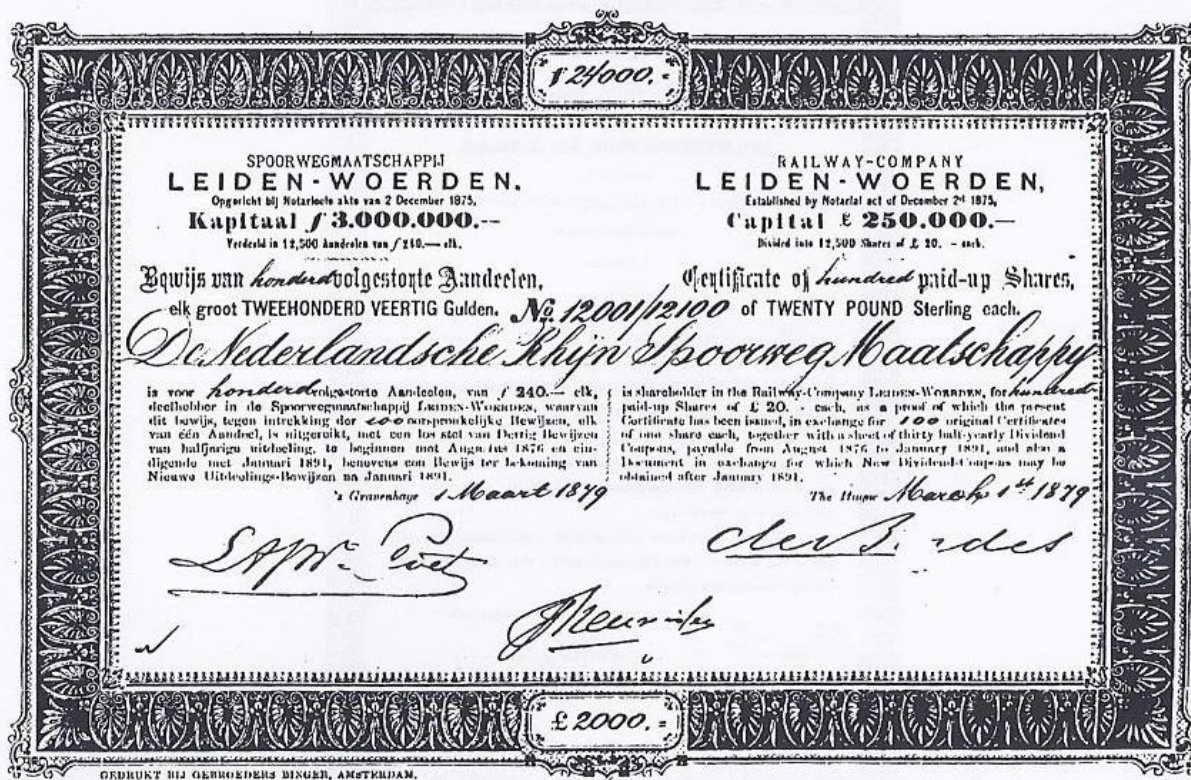 f 24000.=
SPOORWEGMAATSCHAPPIJ
LEIDEN-WOERDEN,
Opgericht bij Notarieele akte van 2 December 1875,
Kapitaal f 3.000.000.--
Verdeeld in 12,500 Aandeelen van f 240.— elk.
Bewijs van honderd volgestorte Aandeelen,
elk groot TWEEHONDERD VEERTIG Gulden.
RAILWAY-COMPANY
LEIDEN-WOERDEN,
Established by Notarial act of December 2d 1875,
Capital £ 250.000.—
Divided into 12,500 Shares of £ 20. - each.
Certificate of hundred paid-up Shares,
No. 12001/12100 of TWENTY POUND Sterling each.
De Nederlandsche Rhijn Spoorweg Maatschappij
is voor honderd volgestorte Aandeelen, van f 240.— elk,
deelhebber in de Spoorwegmaatschappij LEIDEN-WOERDEN, waarvan
dit bewijs, tegen intrekking der 100 oorspronkelijke Bewijzen, elk
van één Aandeel, is uitgereikt, met een los stel van Dertig Bewijzen
van halfjarige uitdeeling, te beginnen met Augustus 1876 en ein-
digende met Januari 1891, benevens een Bewijs ter bekoming van
Nieuwe Uitdeelings-Bewijzen na Januari 1891.
's Gravenhage 1 Maart 1879
is shareholder in the Railway-Company LEIDEN-WOERDEN, for hundred
paid-up Shares of £ 20. - each, as a proof of which the present
Certificate has been issued, in exchange for 100 original Certificates
of one share each, together with a sheet of thirty half-yearly Dividend
Coupons, payable from August 1876 to January 1891, and also a
Document in exchange for which New Dividend-Coupons may be
obtained after January 1891.
The Hague March 1st 1879
£ 2000.=
GEDRUKT BIJ GEBROEDERS BINGER, AMSTERDAM.